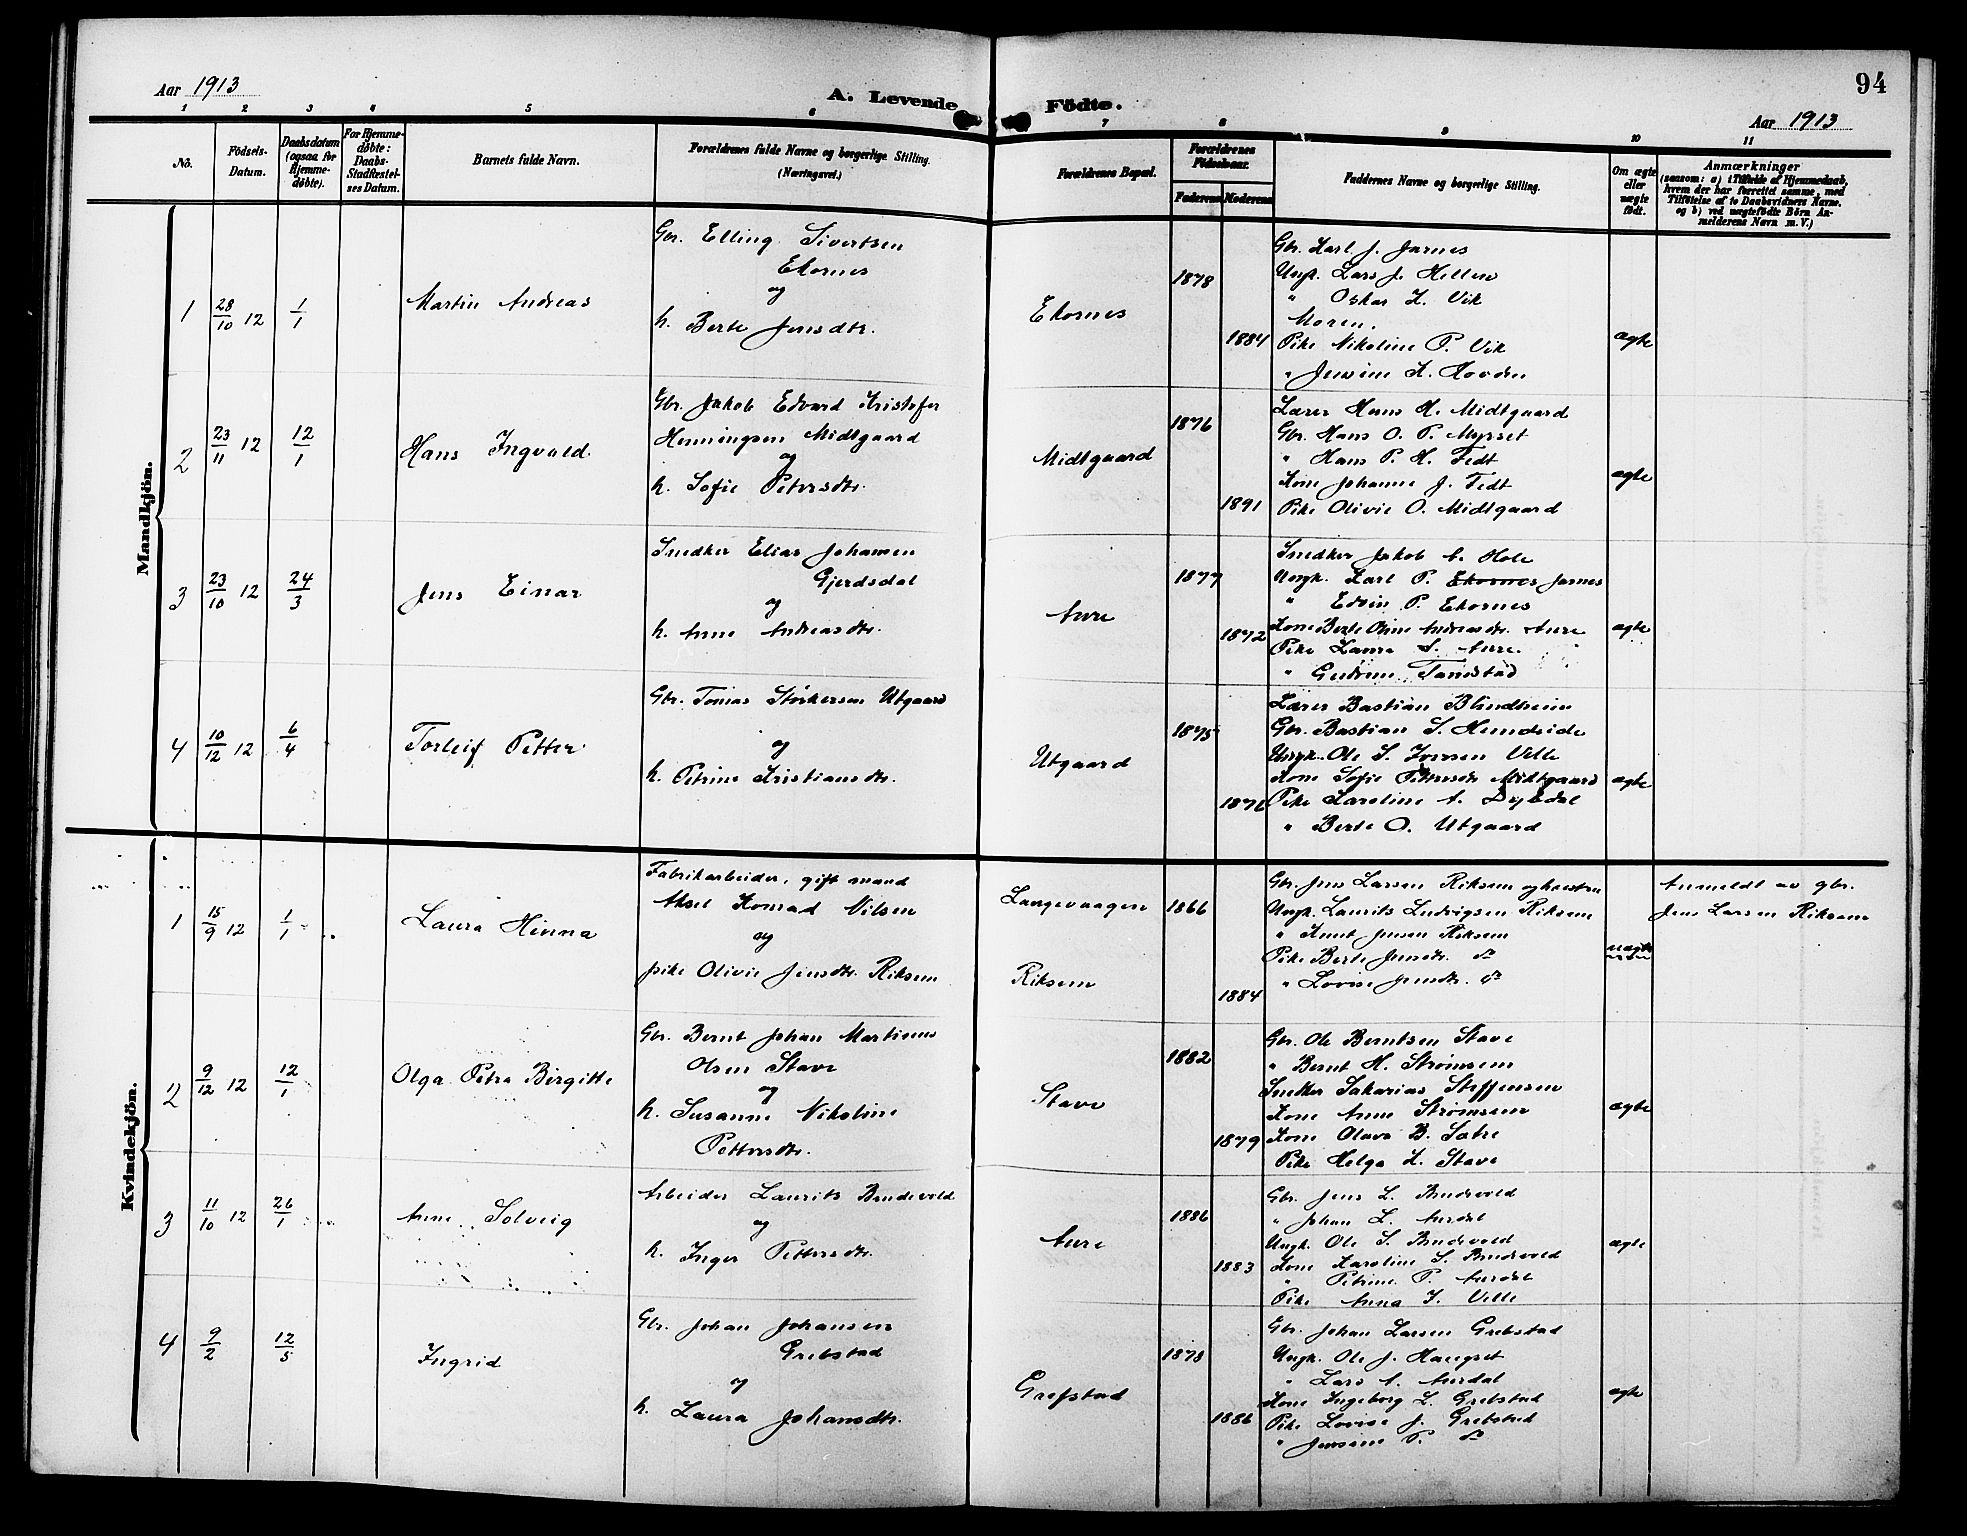 Aar 1913
A. Levende Födte.
94
Aar 1913
1 2 3 4 5 6 7 8 9 10 11
No.
Födsels-Datum.
Daabsdatum (ogsaa for Hjemmedøbte).
For Hjemmedøbte: Daabs-Stadfæstelses Datum.
Barnets fulde Navn.
Forældrenes fulde Navne og borgerlige Stilling. (Næringsvei.)
Forældrenes Bopæl.
Forældrenes Fødselsaar.
Faderens Moderens
Faddernes Navne og borgerlige Stilling.
Om ægte eller uægte födt.
Anmærkninger
(saasom: a) i Tilfælde af Hjemmedaab, hvem der har forrettet samme, med Tilföielse af to Daabsvidners Navne, og b) ved uægtefödte Börn Anmelderens Navn m. V.)
Mandkjön.
1
28/10 12
1/1
Martin Andreas
Gbr. Elling Sivertsen
Ekornes
og
h. Berte Jensdtr.
Ekornes
1878
1884
Gbr. Karl J. Jarnes
Ungk. Lars J. Hellen
" Oskar K. Vik
Moren.
Pike Nikoline P. Vik
" Jensine K. Hovden
ægte
2
23/11 12
12/1
Hans Ingvald
Gbr. Jakob Edvard Kristofer
Henningsen Midtgaard
og
h. Sofie Petersdtr.
Midtgaard
1876
1891
Lærer Hans H. Midtgaard
Gbr. Hans O. P. Myrset
" Hans P. H. Fedt
Kone Johanne J. Fedt
Pike Olivie O. Midtgaard
ægte
3
23/10 12
24/3
Jens Einar
Snedker Elias Johansen
Gjerdsdal
og
h. Anne Andreasdtr.
Aure
1877
1872
Snedker Jakob A. Hole
Ungk. Karl P. Ekornes Jarnes
" Edvin P. Ekornes
Kone Berte Oline Andreasdtr. Aure
Pike Laura S. Aure.
" Gudrun Tandstad
ægte
4
10/12 12
6/4
Torleif Petter
Gbr. Tomas Størkersen Utgaard
og
h. Petrine Kristiansdtr.
Utgaard
1875
1876
Lærer Bastian Blindheim
Gbr. Bastian S. Hundeide
Ungk. Ole S. Iversen Velle
Kone Sofie Pettersdtr Midtgaard
Pike Karoline A. Drabdal
" Berte O. Utgaard
ægte
Kvindekjön.
1
15/9 12
1/1
Laura Hinna
Fabrikarbeider, gift mand
Aksel Konrad Nilsen
og
pike Olivie Jensdtr. Riksem
Langevaagen
Riksem
1866
1884
Gbr. Jens Larsen Riksem og hustru
Ungk. Laurits Ludvigsen Riksem
" Knut Jensen Riksem
Pike Berte Jensdtr. do
" Lovise Jensdtr. do
uægte
Anmeldt av gbr.
Jens Larsen Riksem
2
9/12 12
12/1
Olga Petra Birgitte
Gbr. Bernt Johan Martinus
Olsen Stave
og
h. Susanne Nikoline
Pettersdtr.
Stave
1882
1879
Gbr. Ole Berntsen Stave
" Bernt H. Strømsem
Snedker Sakarias Steffensen
Kone Anne Strømsem
Kone Olava B. Satre
Pike Helga K. Stave
ægte
3
11/10 12
26/1
Anne Solveig
Arbeider Laurits Brudevold
og
h. Inger Pettersdtr.
Aure
1886
1883
Gbr. Jens L. Brudevold
" Johan L. Aurdal
Ungk. Ole S. Brudevold
Kone Karoline S. Brudevold
" Petrine P. Aurdal
Pike Anna I. Velle
ægte
4
9/2
12/5
Ingrid
Gbr. Johan Johansen
Grebstad
og
h. Laura Johansdtr.
Grefstad
1878
1886
Gbr. Johan Larsen Grebstad
Ungk. Ole J. Haugset
" Lars A. Aurdal
Kone Ingeborg L. Grebstad
Pike Lovise J. Grebstad
" Jensine P. do
ægte